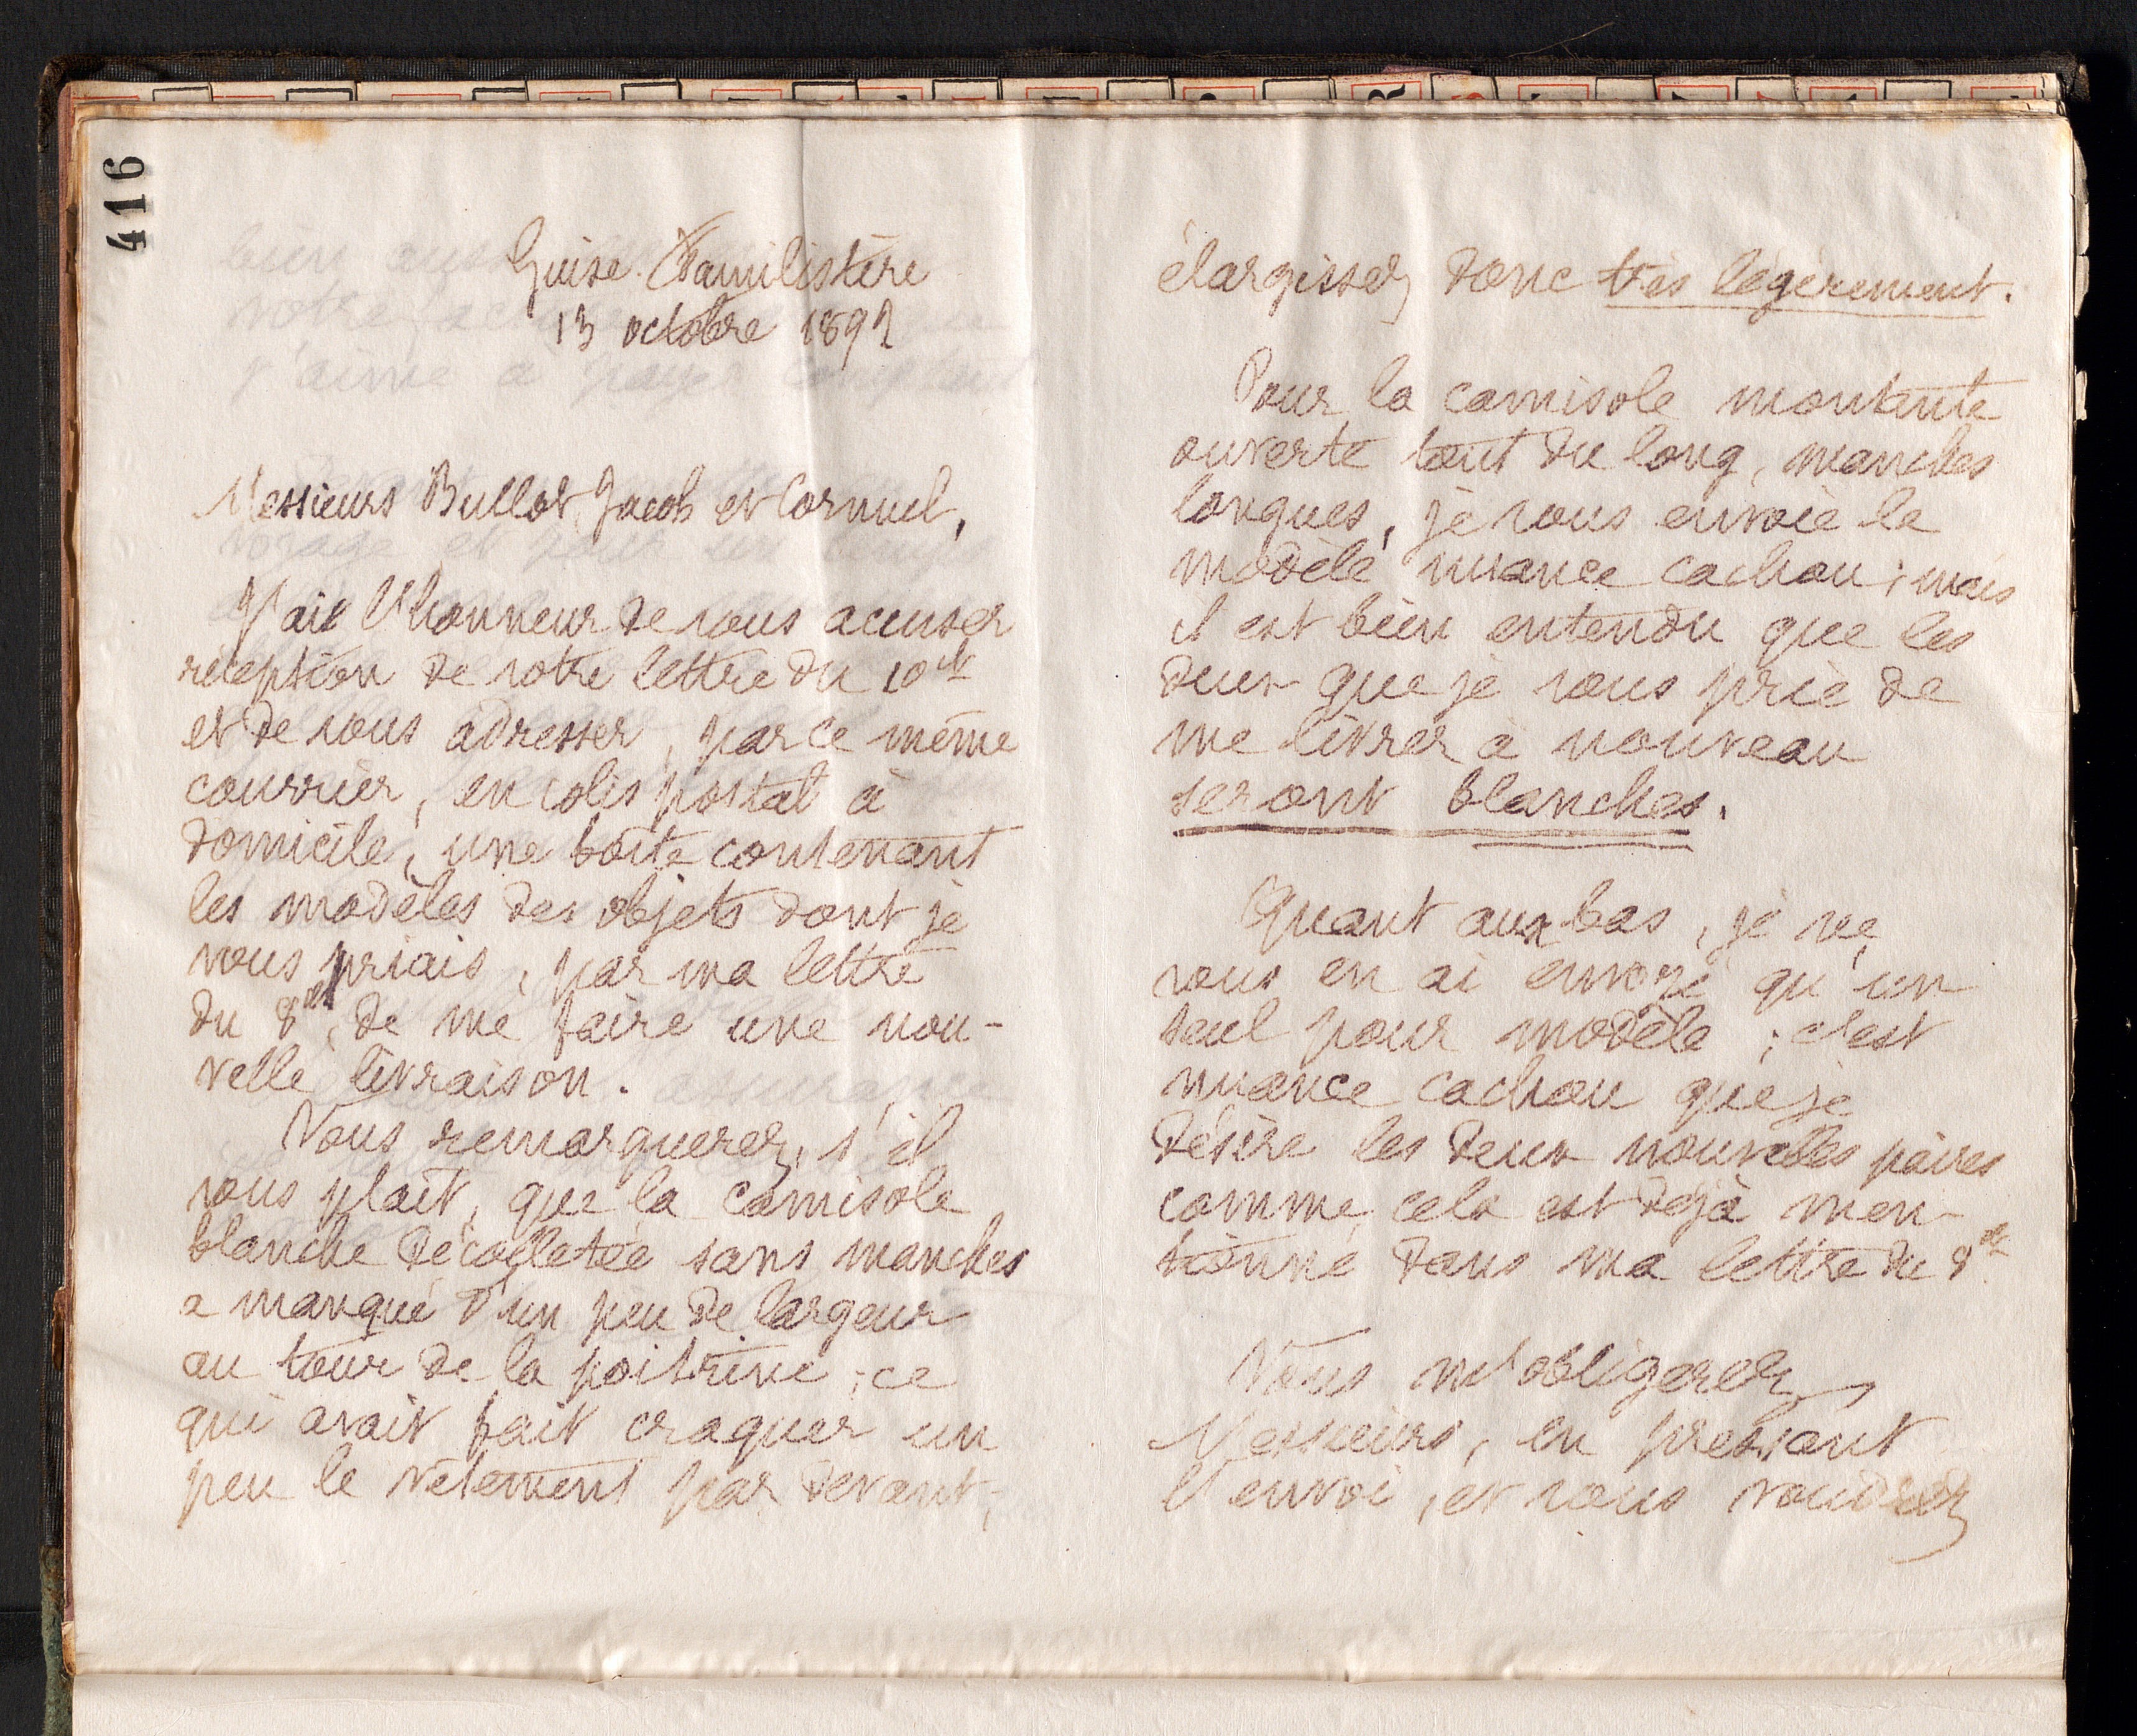 416
Guise. Familistère
13 octobre 1892
Messieurs Bullot, Jacob et Cornuel,
J'ai l'honneur de vous accuser
réception de votre lettre du 10 ct
et de vous adresser, par ce même
courrier, en colis postal à
domicile, une boîte contenant
les modèles des objets dont je
vous priais, par ma lettre
du 8 ct, de me faire une nou-
velle livraison.
Vous remarquerez, s'il
vous plaît, que la camisole
blanche décolletée sans manches
a manqué d'un peu de largeur
au tour de la poitrine ; ce
qui avait fait craquer un
peu le vêtement par devant ;
élargissez donc très légèrement.
Pour la camisole montante
ouverte tout du long, manches
longues, je vous envoie le
modèle nuance cachou ; mais
il est bien entendu que les
deux que je vous prie de
me livrer à nouveau
seront blanches.
Quant aux bas, je ne
vous en ai envoyé qu'un
seul pour modèle ; c'est
nuance cachou que je
désire les deux nouvelles paires
comme cela est déjà men-
tionné dans ma lettre du 8 ct
Vous m'obligerez,
Messieurs, en pressant
l'envoi, et vous voudrez